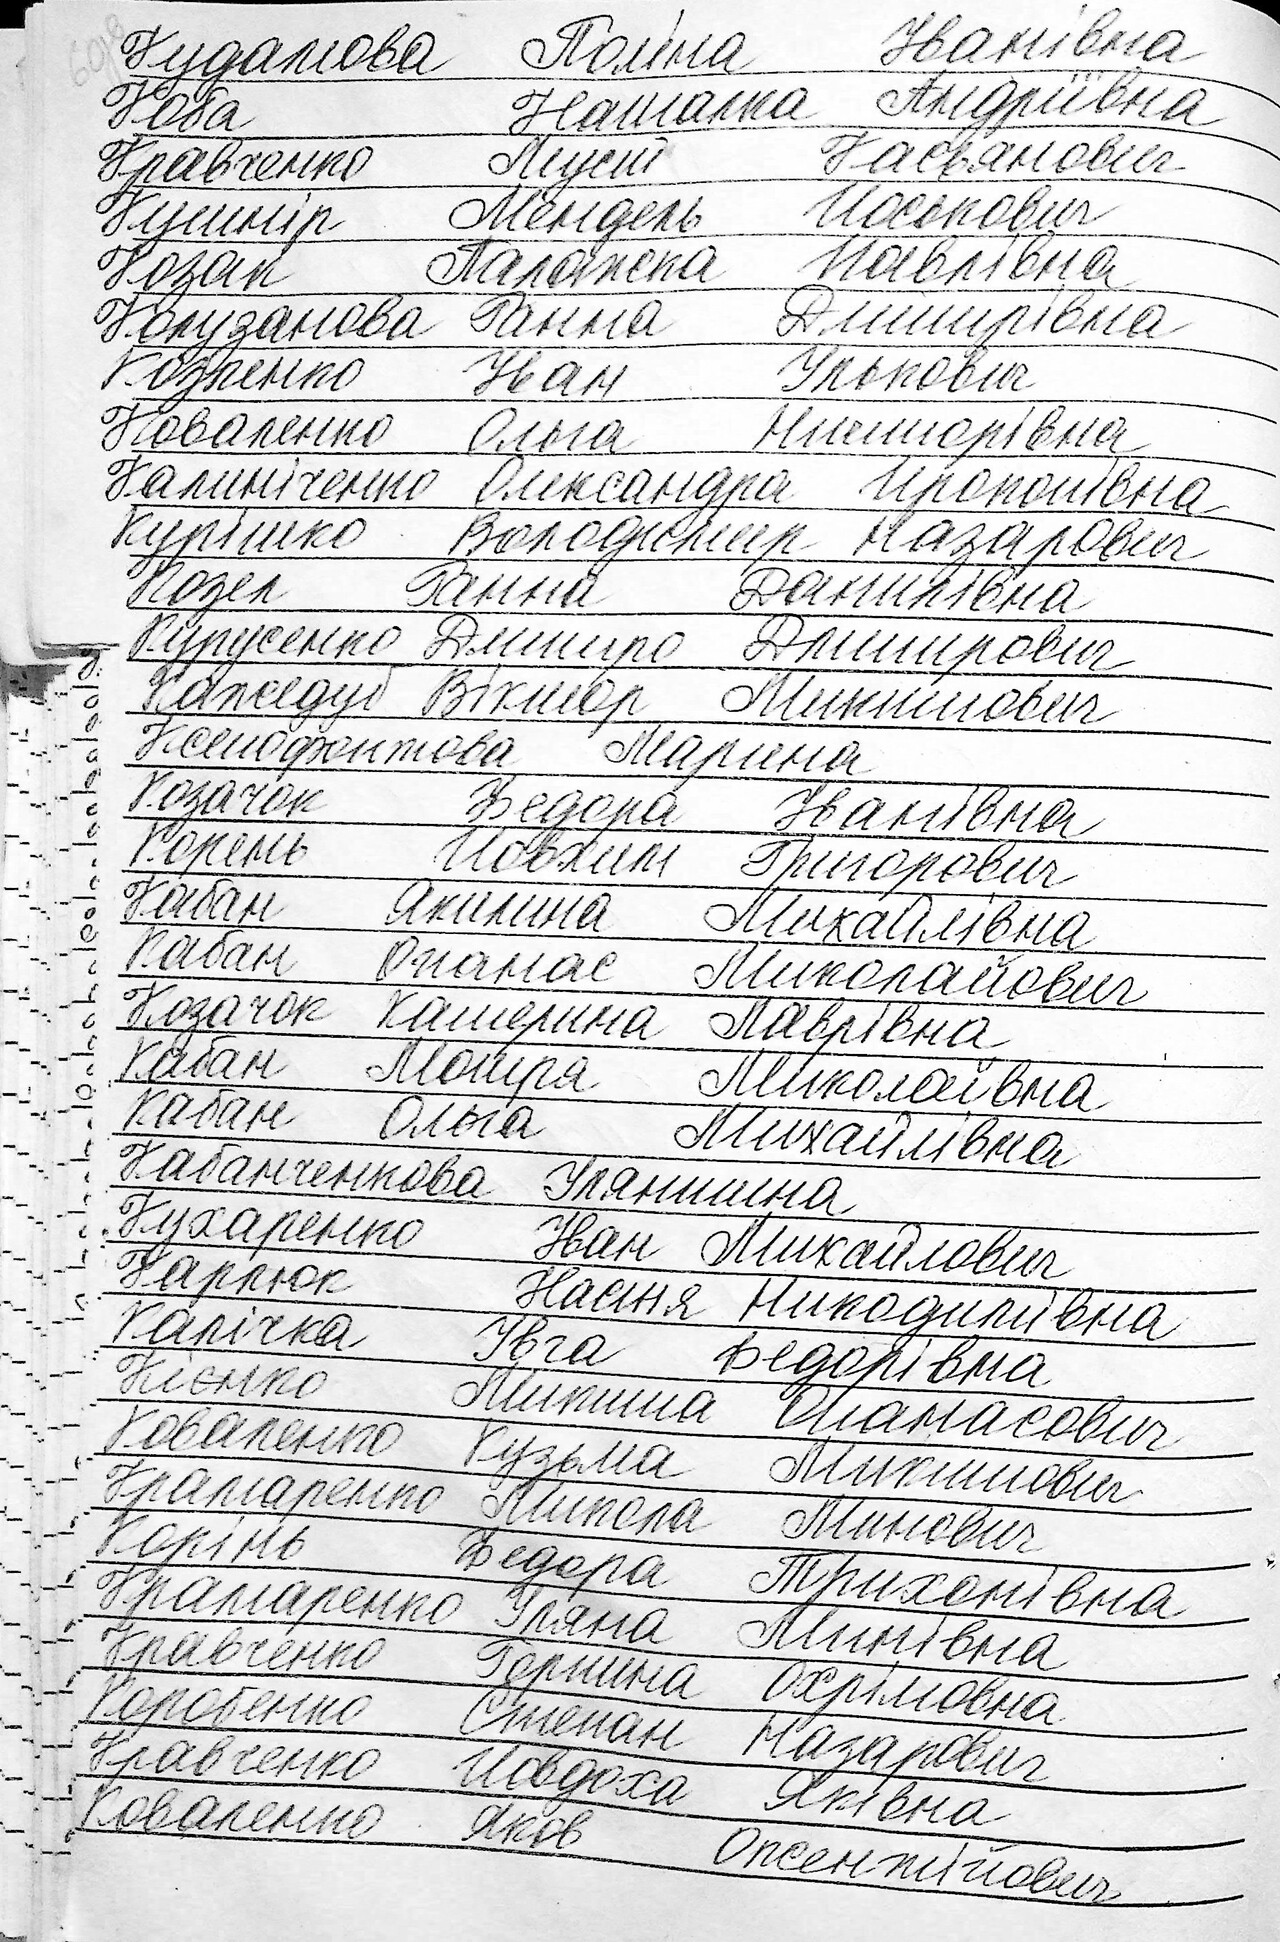 Кудамова Поліна Іванівна
Коба Наталка Андріївна
Кравченко Мусій Касьянович
Кушнір Мендель Йоськович
Козак Палажка Павлівна
Калузанова Ганна Дмитрівна
Козленко Іван Улькович
Коваленко Ольга Никипорівна
Калиніченко Олександра Прокопівна
Курішко Володимир Назарович
Козел Ганна Данилівна
Курусенко Дмитро Дмитрович
Кажедуб Віктор Микитович
Ксенофонтова Марина
Козачок Федора Іванівна
Корень Йовхим Григорович
Кабан Якилина Михайлівна
Кабан Опанас Миколайович
Козачок Катерина Лаврівна
Кабан Мотря Миколаївна
Кабан Ольга Михайлівна
Кабанченкова Улянитина
Кухаренко Іван Михайлович
Карпюк Настя Никодимівна
Калічка Ївга Федорівна
Кієнко Микита Опанасович
Коваленко Кузьма Микитович
Крамаренко Микола Минович
Корінь Федора Трихонівна
Крамаренко Уляна Минівна
Кравченко Горпина Охрімовна
Коробенко Степан Назарович
Кравченко Йовдоха Яківна
Коваленко Яков Оксентійович